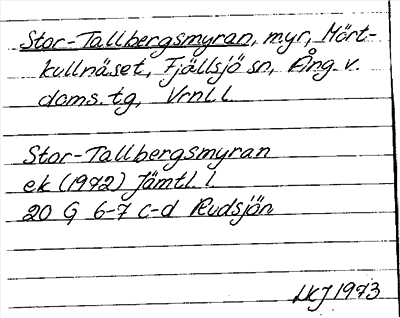 Stor-Tallbergsmyran, myr, Mårt-
kullnäset, Fjällsjö sn, Ång. v.
doms.tg, Vrnl. l
Stor-Tallbergsmyran
ek (1972) Jämtl. l.
20 G 6-7 c-d Rudsjön
LKJ 1973